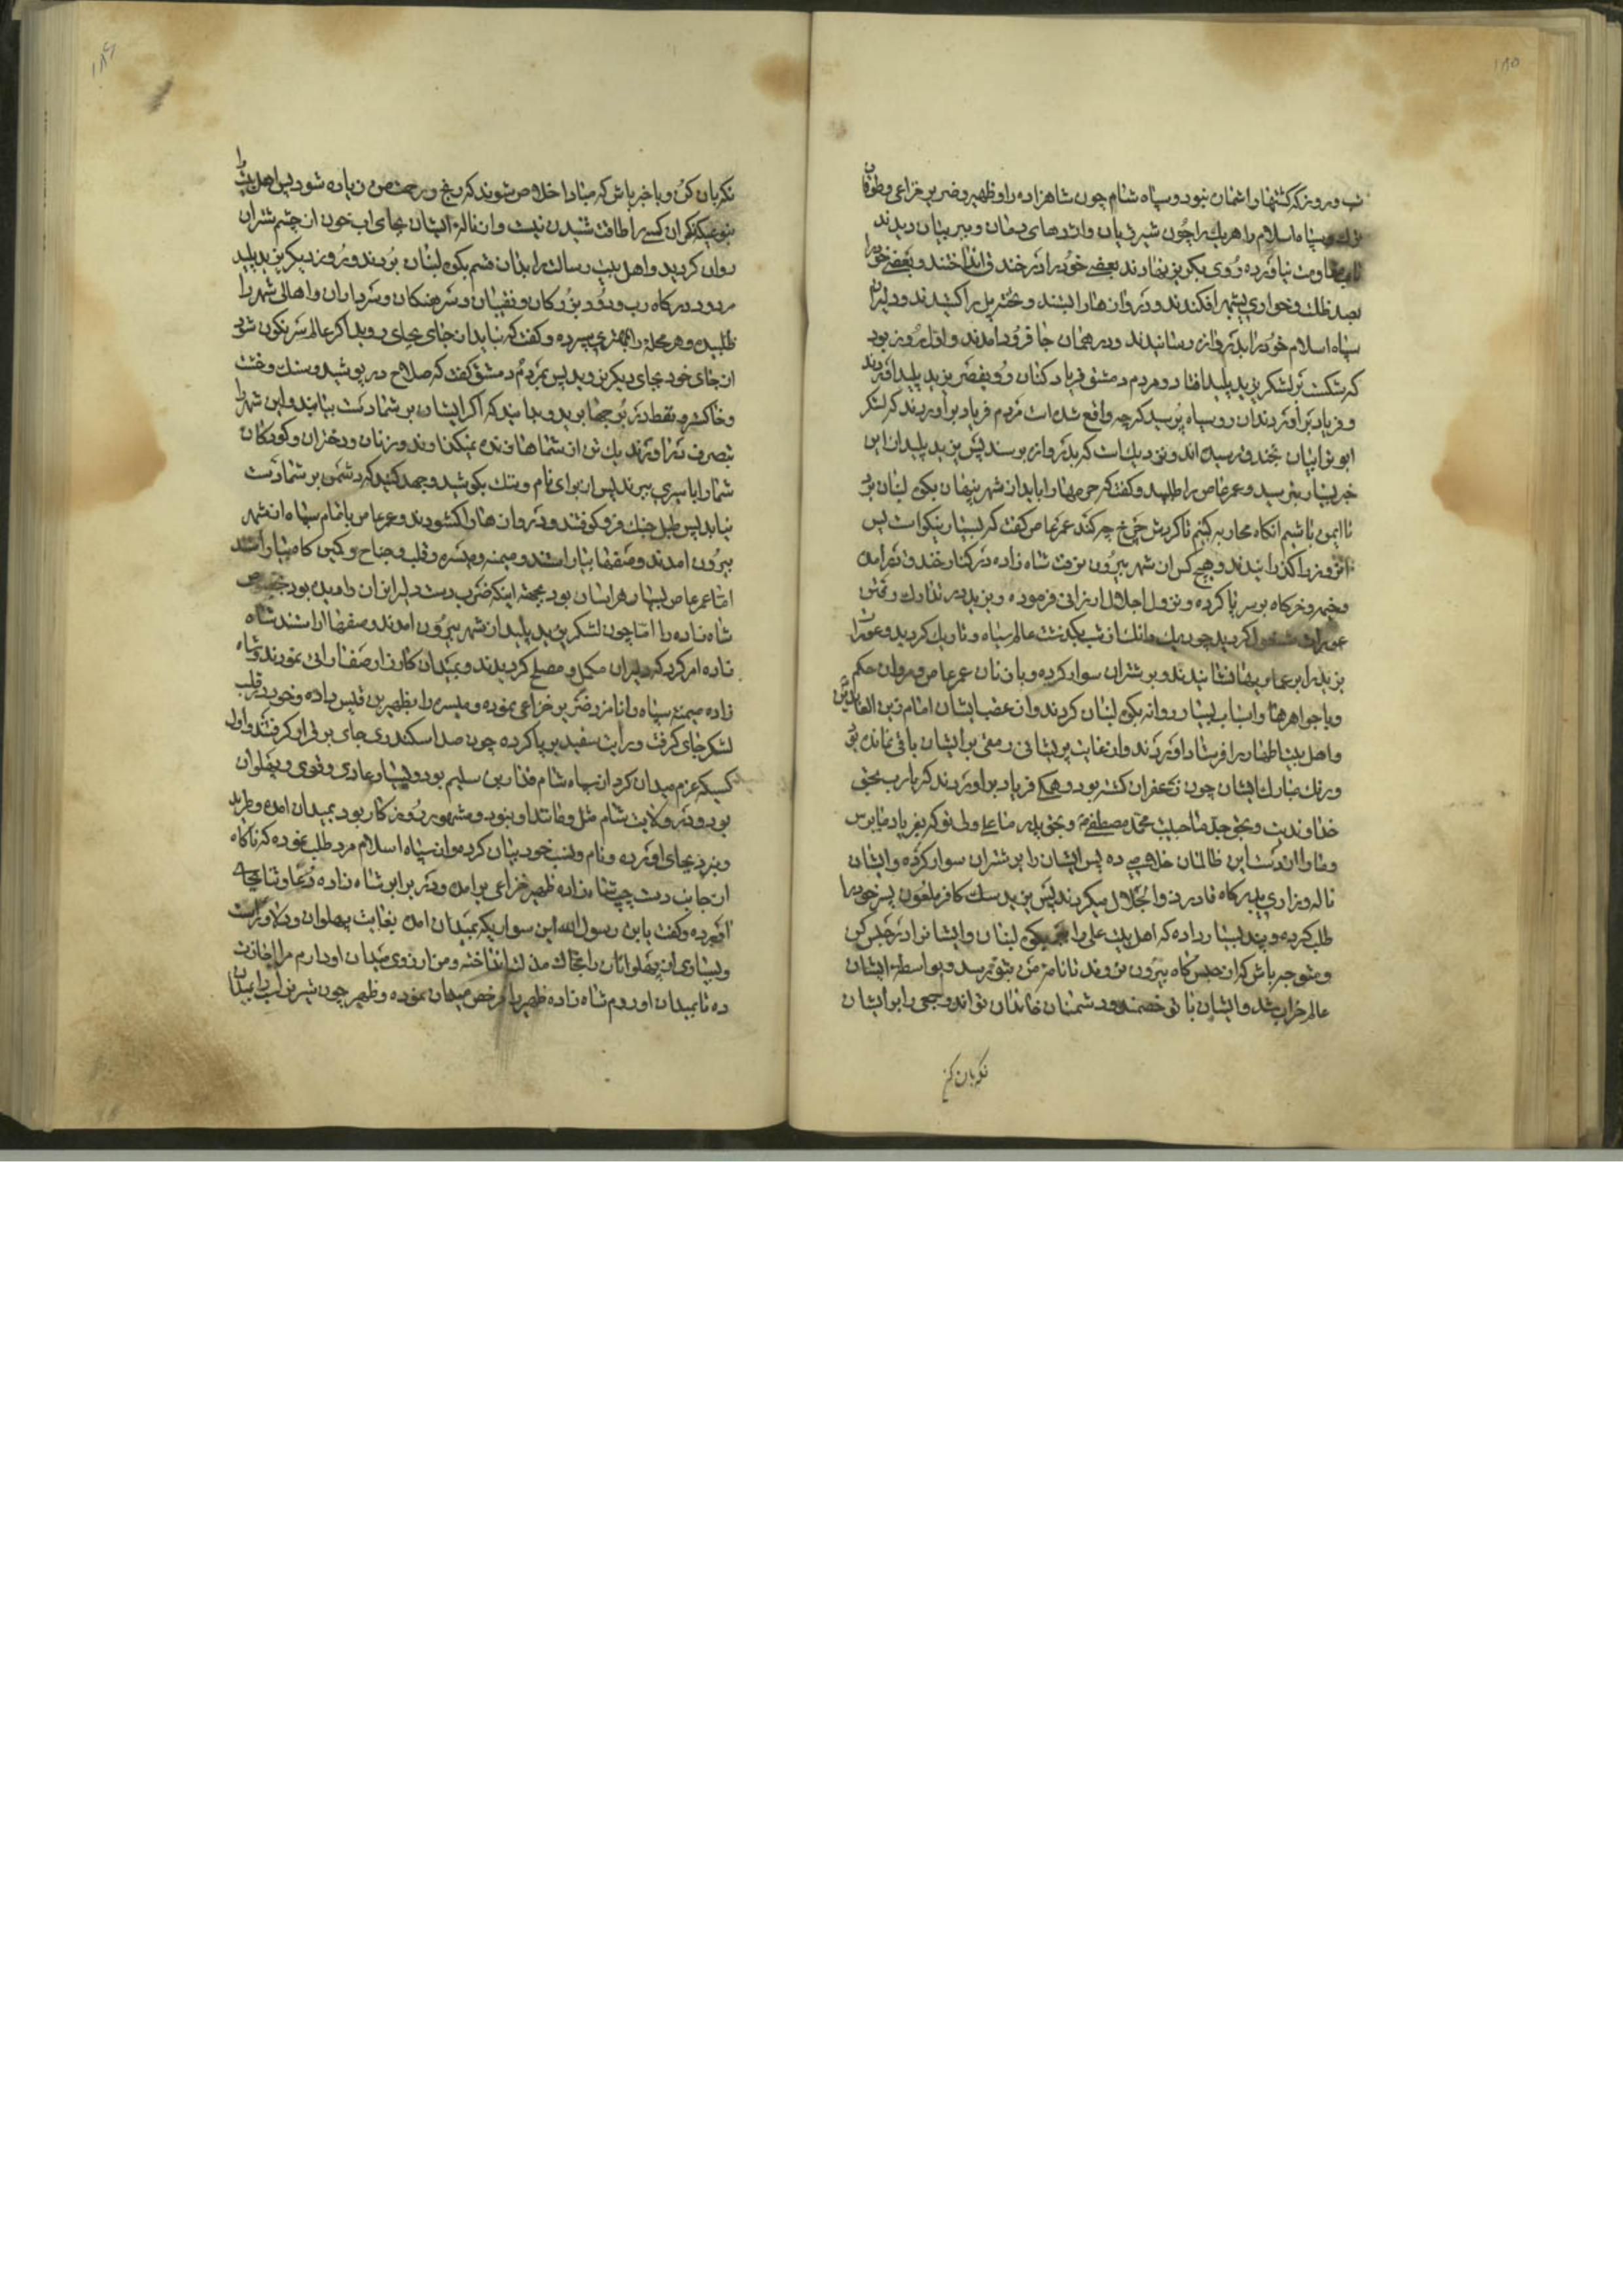 ۱۸۵
شب و روز که کشتها را شمار نبود و سپاه شام چون شاهزاده را و ظهیر و ضریر خزاعی و طوغان
ترک و سپاه اسلام را هریک را چون شیر ژیان و اژدهای دمان و ببر بیان دیدند
تاب مقاومت نیاورده روی بگریز نهادند بعضی خود را در خندق انداختند و بعضی خود را
بصد ذلت و خواری بشهر افکندند و دروازها را بستند و تخته پل را کشیدند و دلیران
سپاه اسلام خود را بدروازه رسانیدند و در همان جا فرود آمدند و اول روز بود
که شکست بر لشکر یزید پلید افتاد و مردم دمشق فریاد کنان رو بقصر یزید پلید آوردند
و فریاد برآوردند آن روسیاه پرسید که چه واقع شده است مردم فریاد برآوردند که لشکر
ابوترابیان بخندق رسیده اند و نزدیک است که بدروازه برسند پس یزید پلید از این
خبر بسیار بترسید و عمرعاص را طلبید و گفت که حرمها را باید از شهر پنهان بکوه لبنان برد
تا ایمن باشیم آنگاه محاربه کنیم تا گردش چرخ چه کند عمرعاص گفت که بسیار نیکو است پس
آنروز را گذرانیدند و هیچکس از شهر بیرون نرفت شاه زاده در کنار خندق درآمده
و خیمه و خرگاه بر سر پا کرده و نزول اجلال ارزانی فرموده و یزید در تدارک رفتن
عورات مشغول گردید چون یک دانک از شب بگذشت عالم سیاه و تاریک گردید و عورتان
یزید را بر عماریها نشانیدند و بر شتران سوار کرده و با زنان عمرعاص و مروان حکم
و با جواهرها و اسباب بسیار روانه بکوه لبنان کردند و از عقب ایشان امام زین العابدین
و اهل بیت اطهار را فرستاد آوردند و از غایت پریشانی رمقی بر ایشان باقی نمانده بود
و رنک مبارک ایشان چون زعفران گشته بود و همگی فریاد برآوردند که یا رب بحق
خداوندیت و بحق جد ما حبیبت محمد مصطفی و بحق پدر ما علی ولی تو که بفریاد ما برس
و ما را از دست این ظالمان خلاصی ده پس ایشان را بر شتران سوار کرده و ایشان
ناله و زاری بدرگاه قادر ذوالجلال میکردند پس یزید سک کافر ملعون پسر خود را
طلب کرده و پند بسیار داده که اهل بیت علی را بکوه لبنان و ایشانرا در حبس کن
و متوجه باش که از حبس گاه بیرون نروند تا نامه من بتو برسد و بواسطه ایشان
عالم خراب شد و ایشان با تو خصمند و دشمنان خاندان تواند و جمعی را بر ایشان
نگهبان کن
۱۸۶
نگهبان کن و با خبر باش که مبادا خلاص شوند که رنج و زحمت من زیاده شود پس اهل بیت را
بنوعیکه نگران کسی را طاقت شنیدن نیست و از ناله ایشان بجای آب خون از چشم شتران
روان گردید و اهل بیت رسالت را بدان قسم بکوه لبنان بردند و روز دیگر یزید پلید
مردود درگاه رب ودود بزرگان و نقیبان و سرهنگان و سرداران و اهالی شهر را
طلبیده و هر محله را بمهتری سپرده و گفت که نباید از جای بجای روید اگر عالم سرنگون شود
از جای خود بجای دیگر نروید پس بمردم دمشق گفت که صلاح در پوشید و سنک و خشت
و خاکستر و نفط در برجها برید و بدانید که اگر ایشان بر شما دست بیابند و این شهر را
بتصرف درآورند یک تن از شماها زنده نمیگذارند و زنان و دختران و کودکان
شما را باسیری ببرند پس از برای نام و ننک بکوشید و جهد کنید که دشمن بر شما دست
نیابد پس طبل جنک فرو کوفتند و دروازها را گشودند و عمرعاص با تمام سپاه از شهر
بیرون آمدند و صفها بیاراستند و میمنه و میسره و قلب و جناح و کمین گاه بیاراستند
اما عمرعاص بسیار هراسان بود بجهة اینکه ضرب دست دلیران را دیده بود خصوص
شاه زاده را اما چون لشکر یزید پلید از شهر بیرون آمدند و صفها آراستند شاه
زاده امر کرد که دلیران مکمل و مصلح گردیدند و بمیدان کارزار صف آرائی نمودند و شاه
زاده میمنه سپاه را نامزد ضریر خزاعی نموده و میسره را بظهیر بن قیس داده و خود در قلب
لشکر جای گرفت و رایت سفید بر پا کرده چون صد اسکندری جای بر قرار گرفتند و اول
کسیکه عزم میدان کرد از سپاه شام فنار بن سلیم بود و بسیار عادی و قوی و پهلوان
بود و در ولایت شام مثل و مانند او نبود و مشهور روزگار بود بمیدان آمده و طرید
و نبرد بجای آورده و نام و نسب خود بیان کرده و از سپاه اسلام مرد طلب نموده که ناگاه
از جانب دست چپ شاه زاده ظهیر خزاعی برآمده و در برابر شاه زاده دعا و ثنا بجای
آورده و گفت یا بن رسول الله این سواریکه بمیدان آمده بغایت پهلوان و دلاور است
و بسیاری از پهلوانان را بخاک مذلت انداخته و من آرزوی میدان او دارم مرا اجازت
ده تا بمیدان او روم شاه زاده ظهیر را مرخص میدان نموده و ظهیر چون شیر نر اسب را بمیدان